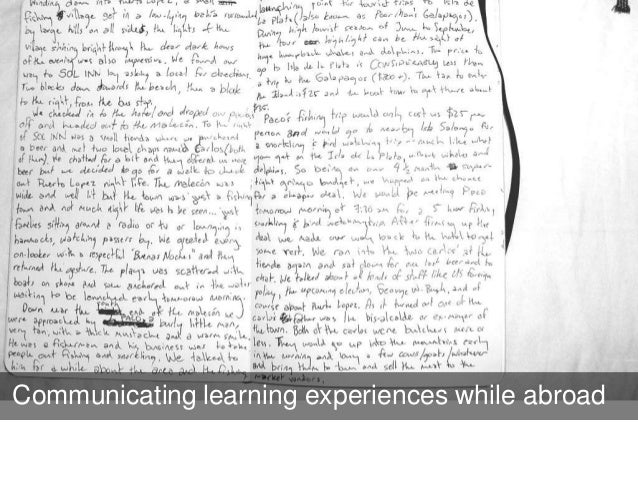 winding down into Puerto Lopez, a small
fishing village set in a low-lying bahia surrounded
by large hills on all sides, the lights of the
village shining bright through the clear dark hours
of the evening was also impressive. We found our
way to SOL INN by asking a local for directions.
Two blocks down towards the beach, then a block
to the right, from the bus stop.
We checked in to the hotel and dropped our packs
off and headed out to the Malecón. To the right
of SOL INN was a small tienda where we purchased
a beer and met two local chaps named Carlos (both
of them). We chatted for a bit and they offered us more
beer but we decided to go for a walk to check
out Puerto Lopez night life. The malecón was
wide and well lit but the town was just a fishing
town and not much night life was to be seen... just
families sitting around a radio or tv or lounging in
hammocks, watching passers by. We greeted every
on-looker with a respectful "Buenas Noches" and they
returned the gesture. The playa was scattered with
boats on shore and some anchored out in the water
waiting to be launched early tomorrow morning.
Down near the end of the malecón we
were approached by a burly little man,
very tan, with a thick mustache and a warm smile.
He was a fisherman and his business was to take
people out fishing and snorkling. We talked to
him for a while about the area and the fishing
launching point for tourist trips to Isla de
La Plata (also known as Poor man's Galapagos).
During high tourist season of June to September
the tour highlight can be the sight of
huge humpback whales and dolphins. The price to
go to Isla de la Plata is CONSIDERABLY less than
a trip to the Galapagos ($800+). The tax to enter
the Island is $25 and the boat tour to get there about
$35.
Paco's fishing trip would only cost us $25 per
person and would go to nearby Isla Salango for
a snorkeling & bird watching trip - much like what
you get on the Isla de La Plata, minus whales and
dolphins. So being on our 4½ month super-
tight gringo budget, we hopped on the chance
for a cheaper deal. We would be meeting Paco
tomorrow morning at 7:30 am for a 5 hour fishing,
snorkling & bird watching trip. After firming up the
deal we made our way back to the hotel to get
some rest. We ran into the two Carlos' at the
tienda again and sat down for one last beer and to
chat. We talked about all kinds of stuff like US foreign
policy, the upcoming election, George W. Bush, and of
course about Puerto Lopez. As it turned out one of the
Carlos' father was the ex-mayor of
the town. Both of the Carlos were butchers more or
less. They would go up into the mountains early
in the morning and buy a few cows/goats/whatever
and bring them to town and sell the meat to the
market vendors.
Communicating learning experiences while abroad